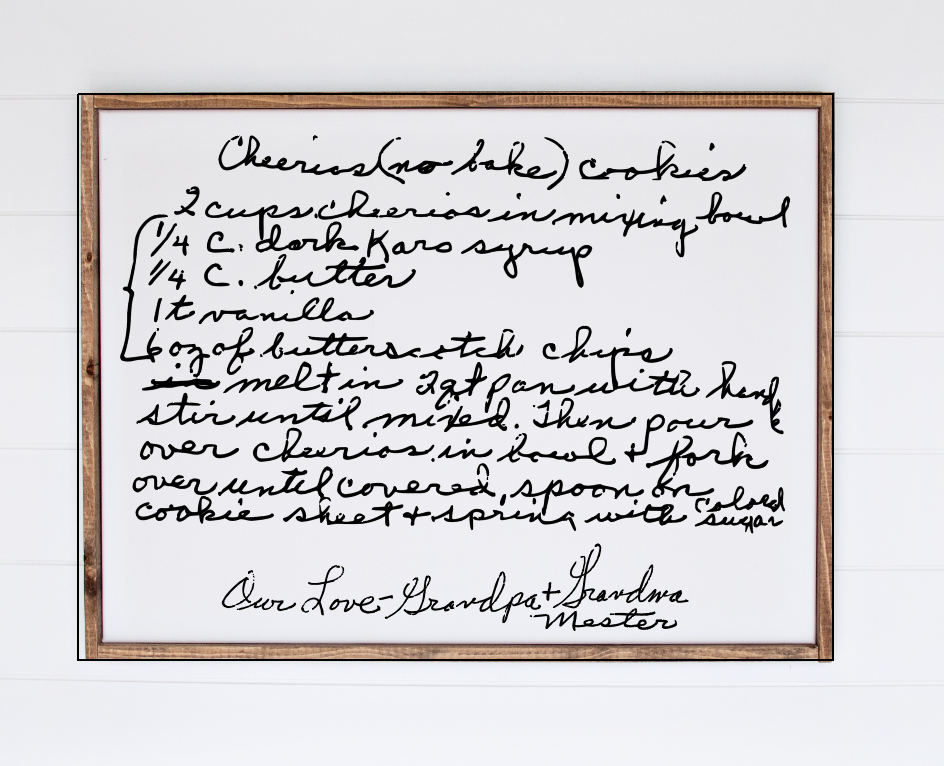 Cheerios (no bake) cookies
2 cups cheerios in mixing bowl
1/4 C. dark Karo syrup
1/4 C. butter
1 t vanilla
6 oz of butterscotch chips
melt in 2 qt pan with hand &
stir until mixed. Then pour
over cheerios in bowl + fork
over until covered, spoon on
cookie sheet + spring with colored sugar
Our Love - Grandpa + Grandma
Mester